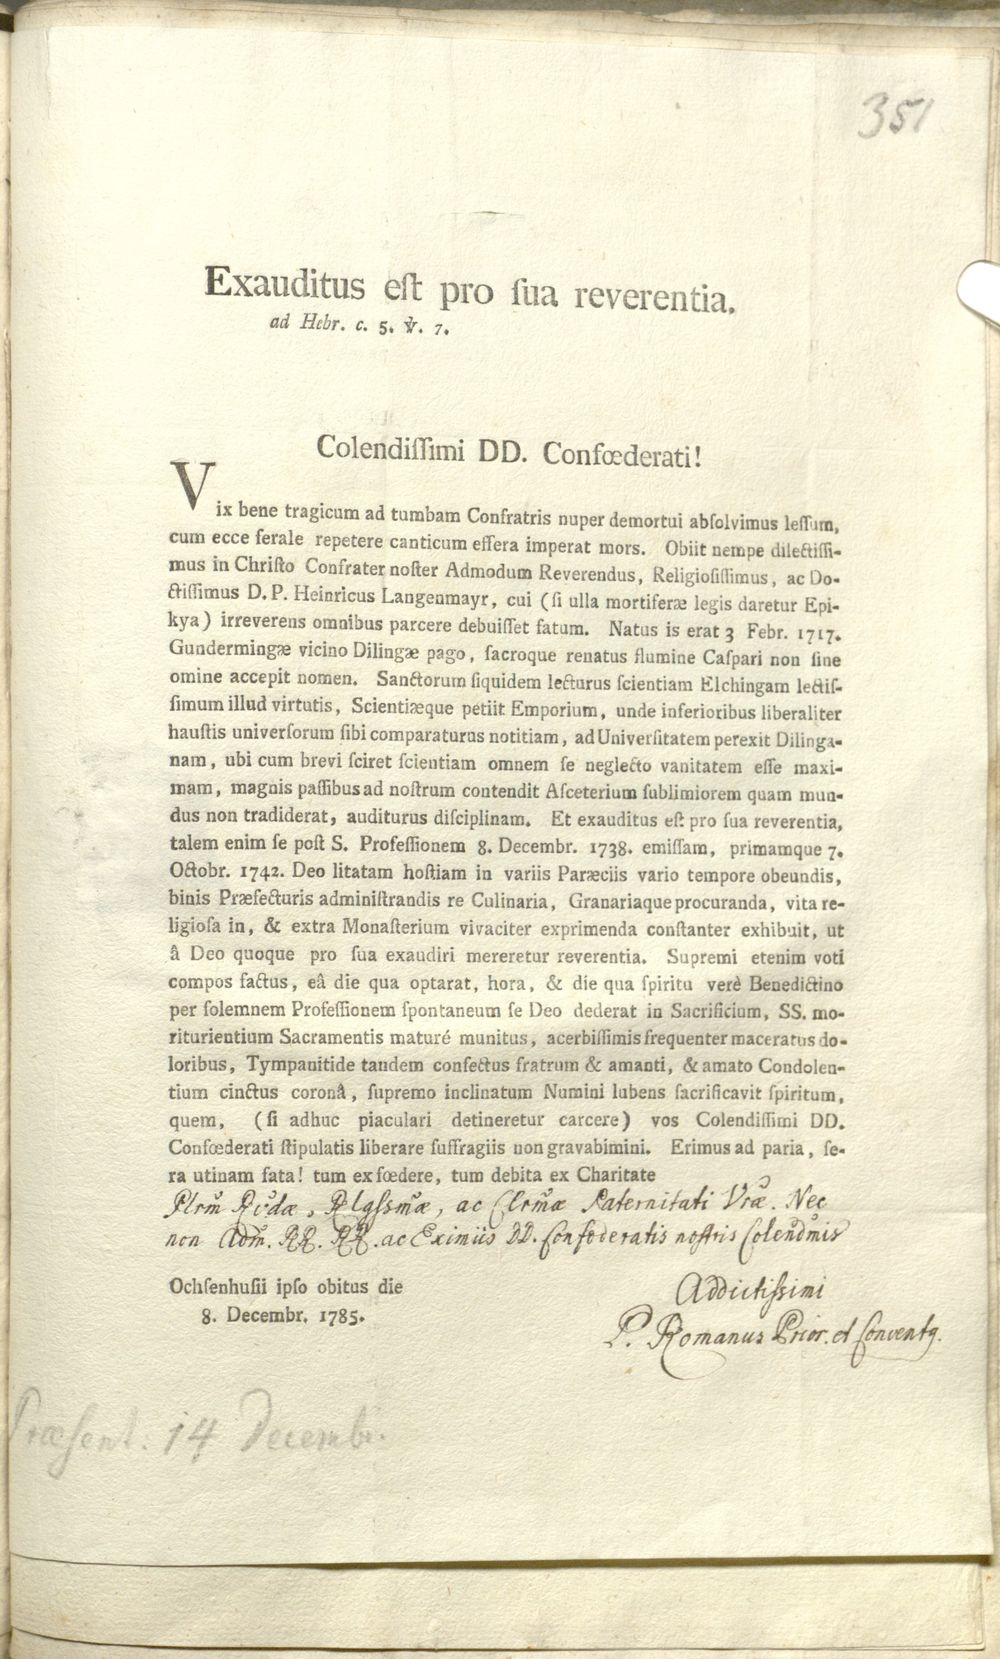 351
Exauditus eſt pro ſua reverentia.
ad Hebr. c. 5. ℣. 7.
Colendiſſimi DD. Confœderati!
Vix bene tragicum ad tumbam Confratris nuper demortui abſolvimus leſſum,
cum ecce ferale repetere canticum effera imperat mors. Obiit nempe dilectiſſi-
mus in Chriſto Confrater noſter Admodum Reverendus, Religioſiſſimus, ac Do-
ctiſſimus D. P. Heinricus Langenmayr, cui (ſi ulla mortiferæ legis daretur Epi-
kya) irreverens omnibus parcere debuiſſet fatum. Natus is erat 3 Febr. 1717.
Gundermingæ vicino Dilingæ pago, ſacroque renatus flumine Caſpari non ſine
omine accepit nomen. Sanctorum ſiquidem lecturus ſcientiam Elchingam lectiſ-
ſimum illud virtutis, Scientiæque petiit Emporium, unde inferioribus liberaliter
hauſtis univerſorum ſibi comparaturus notitiam, ad Univerſitatem perexit Dilinga-
nam, ubi cum brevi ſciret ſcientiam omnem ſe neglecto vanitatem eſſe maxi-
mam, magnis paſſibus ad noſtrum contendit Aſceterium ſublimiorem quam mun-
dus non tradiderat, auditurus diſciplinam. Et exauditus eſt pro ſua reverentia,
talem enim ſe poſt S. Profeſſionem 8. Decembr. 1738. emiſſam, primamque 7.
Octobr. 1742. Deo litatam hoſtiam in variis Paræciis vario tempore obeundis,
binis Præfecturis adminiſtrandis re Culinaria, Granariaque procuranda, vita re-
ligioſa in, & extra Monaſterium vivaciter exprimenda conſtanter exhibuit, ut
â Deo quoque pro ſua exaudiri mereretur reverentia. Supremi etenim voti
compos factus, eâ die qua optarat, hora, & die qua ſpiritu verè Benedictino
per ſolemnem Profeſſionem ſpontaneum ſe Deo dederat in Sacrificium, SS. mo-
riturientium Sacramentis maturé munitus, acerbiſſimis frequenter maceratus do-
loribus, Tympanitide tandem confectus fratrum & amanti, & amato Condolen-
tium cinctus coronâ, ſupremo inclinatum Numini lubens ſacrificavit ſpiritum,
quem, (ſi adhuc piaculari detineretur carcere) vos Colendiſſimi DD.
Confœderati ſtipulatis liberare ſuffragiis non gravabimini. Erimus ad paria, ſe-
ra utinam fata! tum ex fœdere, tum debita ex Charitate
Plrm̃ Rv̄dæ, Rlgſsm̃æ, ac Clrm̃æ Paternitati Vr̃æ. Nec
non Adm̃. RR. RR. ac Eximiis DD. Confœderatis noſtris Colend̃mis
Ochſenhuſii ipſo obitus die
8. Decembr. 1785.
Addictiſsimi
P. Romanus Prior. et Conventq.
Præſent: 14 Decembr.